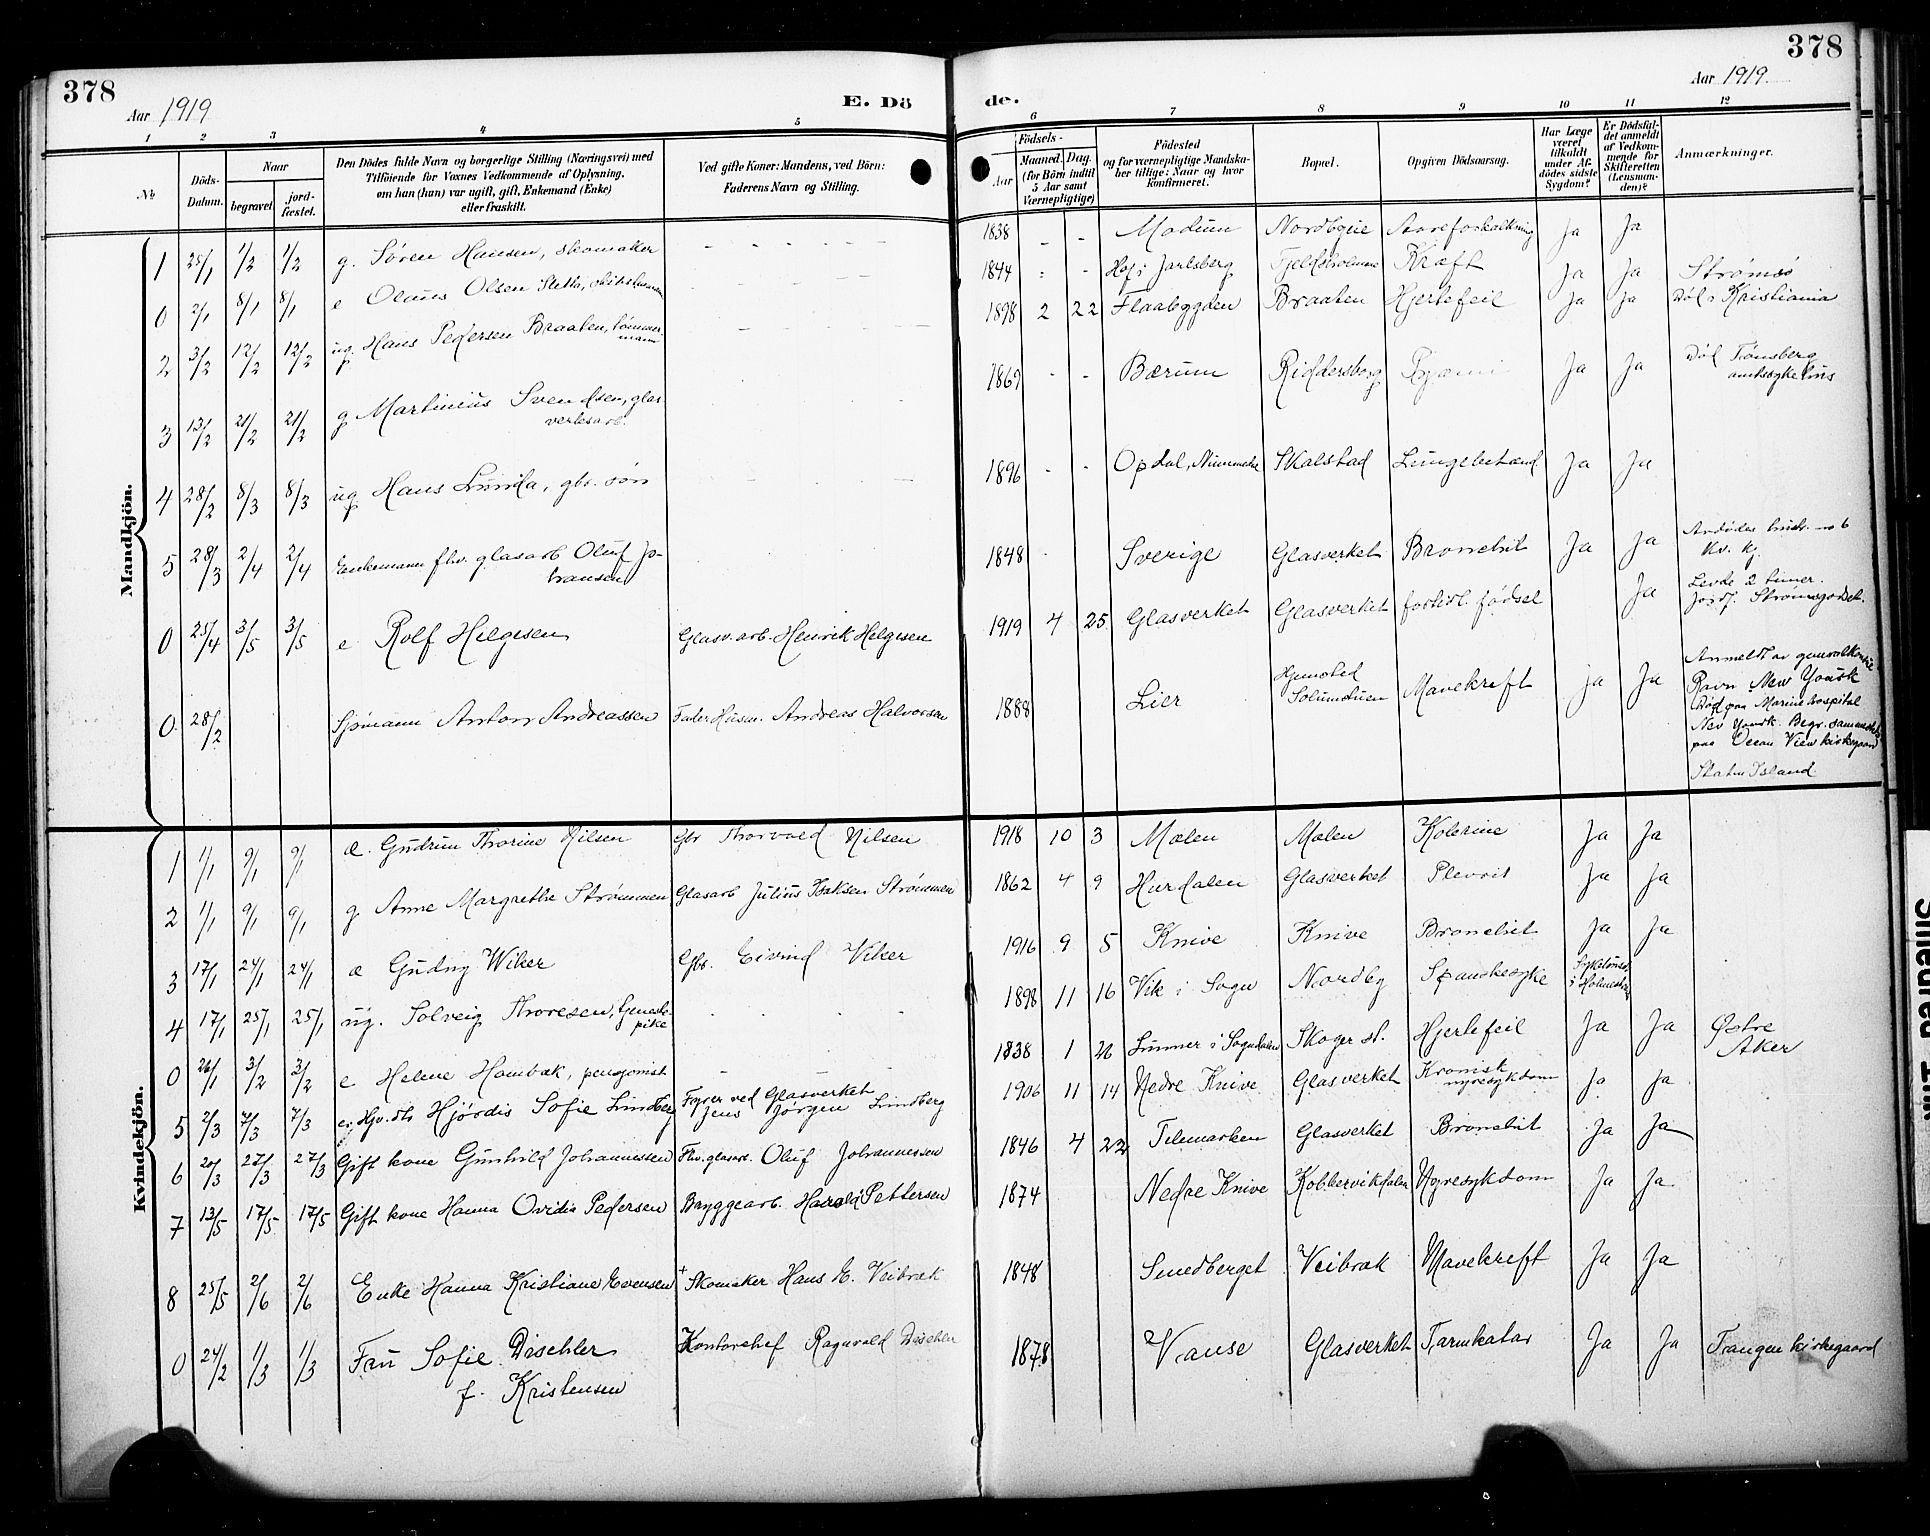 378
Aar 1919
E. Dö
1 2 3 4 5
№
Döds-Datum.
Naar
begravet.
jord-fæstet.
Den Dödes fulde Navn og borgerlige Stilling (Næringsvei) med
Tilföiende for Voxnes Vedkommende af Oplysning,
om han (hun) var ugift, gift, Enkemand (Enke)
eller fraskilt.
Ved gifte Koner: Mandens, ved Börn:
Faderens Navn og Stilling.
Mandkjön.
1 25/1 1/2 1/2 g. Søren Hansen, skomaker - - - - - -
0 2/1 8/1 8/1 e Olaus Olsen Sletta,
2 3/2 12/2 12/2 ug. Hans Pedersen Braaten, tømmer-
mann
3 13/2 21/2 21/2 g Martinius Svendsen, glas-
verksarb.
4 28/2 8/3 8/3 ug Hans Lunda, gbr. søn
5 28/3 2/4 2/4 Enkemann fhv. glasarb Oluf Jo-
hansen
0 25/4 3/5 3/5 e Rolf Helgesen Glasv. arb. Henrik Helgesen
0 28/2 Sjømann Anton Andreassen Fader Husm. Andreas Halvorsen
Kvindekjön.
1 1/1 9/1 9/1 æ. Gudrun Thorine Nilsen Gbr Thorvald Nilsen
2 1/1 9/1 9/1 g Anne Margrethe Strømmen Glasarb Julius Isaksen Strømmen
3 17/1 24/1 24/1 æ Gudny Wiker Gbr. Eivind Viker
4 17/1 25/1 25/1 ug. Solveig Thoresen, tjeneste-
pike
0 26/1 3/2 3/2 e Helene Hambak, pensjonist
5 2/3 7/3 7/3 Hjv. dtr Hjørdis Sofie Lundberg Fyrer ved Glasverket
Jens Jörgen Lundberg
6 20/3 27/3 27/3 Gift kone Gunhild Johannessen Fhv. glasarb. Oluf Johannessen
7 13/5 17/5 17/5 Gift kone Hanna Ovidia Pedersen Bryggearb. Harald Pettersen
8 25/5 2/6 2/6 Enke Hanna Kristiane Evensen + Skomaker Hans E. Veibræk
0 24/2 1/3 1/3 Fru Sofie Dischler Kontorchef Ragnvald Dischler
f. Kristensen
378
Aar 1919.
de.
6 7 8 9 10 11 12
Födsels-
Aar
Maaned. Dag.
(for Börn indtil
5 Aar samt
Værnepligtige)
Födested
og for værnepligtige Mandska-
ber tillige: Naar og hvor
konfirmeret.
Bopæl.
Opgiven Dödsaarsag.
Har Læge
været
tilkaldt
under Af-
dödes sidste
Sygdom?
Er Dödsfal-
det anmeldt
af Vedkom-
mende for
Skifteretten
(Lensman-
den)?
Anmærkninger.
1838 - - Modum Nordbyeie Aareforkalkning Ja Ja
1844 - - Hof i Jarlsberg Fjeldsholmen Kræft Ja Ja Strømsø
1898 2 22 Flaabygden Braaten Hjertefeil Ja Ja Död i Kristiania
1869 - - Bærum Riddersborg Ja Ja Död Tønsberg
amtssykehus
1896 - - Opdal, Nummedal Skalstad Lungebetænd. Ja Ja
1848 - Sverige Glasverket Bronchit Ja Ja
1919 4 25 Glasverket Glasverket forhdl. fødsel Ja Levde 2 timer.
Jordf. Strømsgodset.
1888 Lier Hjemsted
Solumstuen Mavekreft ja Ja Anmeldt av
Ravn New Yourk
Död paa Marinehospital
New Yourk. Begr. sammesteds
paa Ocean View kirkegaard
Staten Island
1918 10 3 Mælen Mælen Kolerine Ja Ja
1862 4 9 Hurdalen Glasverket Plevrit Ja Ja
1916 9 5 Knive Knive Bronchit Ja Ja
1898 11 16 Vik i Sogn Nordby Spanskesyke
1838 1 26 Skoger st. Hjertefeil Ja Ja Østre
Aker
1906 11 14 Nedre Knive Glasverket Kronisk
nyresykdom Ja Ja
1846 4 22 Telemarken Glasverket Bronchit Ja Ja
1874 Nedre Knive Kobbervikdalen Nyresykdom Ja Ja
1848 Smedberget Veibræk Mavekreft Ja Ja
1878 Vanse Glasverket Tarmkatar Ja Ja Tangen kirkegaard